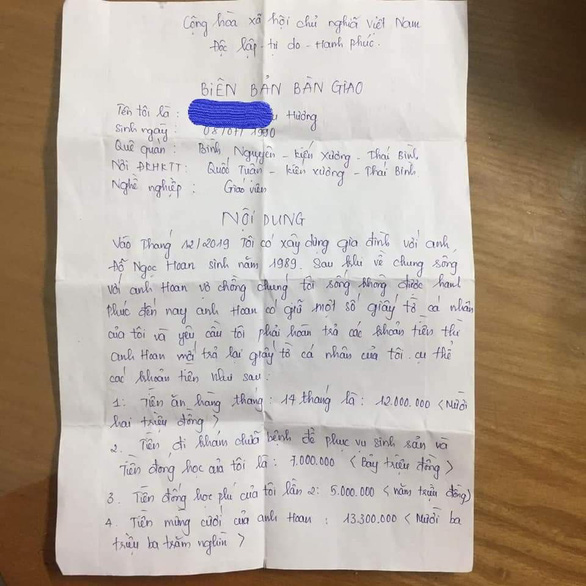 Cộng hòa xã hội chủ nghĩa Việt Nam
Độc lập - tự do - Hạnh phúc.
BIÊN BẢN BÀN GIAO
Tên tôi là : Hương
Sinh ngày : 08/07/1990
Quê quán : Bình Nguyên - Kiến Xương - Thái Bình
Nơi ĐKHKTT : Quốc Tuấn - Kiến xương - Thái Bình
Nghề nghiệp : Giáo viên
NỘI DUNG
Vào Tháng 12/2019 Tôi có xây dựng gia đình với anh
Đỗ Ngọc Hoan sinh năm 1989. Sau khi về chung sống
với anh Hoan vợ chồng chúng tôi sống không được hạnh
phúc đến nay anh Hoan có giữ một số giấy tờ cá nhân
của tôi và yêu cầu tôi phải hoàn trả các khoản tiền thì
anh Hoan mới trả lại giấy tờ cá nhân của tôi. cụ thể
các khoản tiền như sau:
1. Tiền ăn hàng tháng : 14 tháng là : 12.000.000 < Mười
hai triệu đồng >
2. Tiền đi khám chữa bệnh để phục vụ sinh sản và
Tiền đóng học của tôi là : 7.000.000 < Bảy triệu đồng >
3. Tiền đóng học phí của tôi lần 2: 5.000.000 < năm triệu đồng>
4. Tiền mừng cưới của anh Hoan : 13.300.000 < Mười ba
triệu ba trăm nghìn >